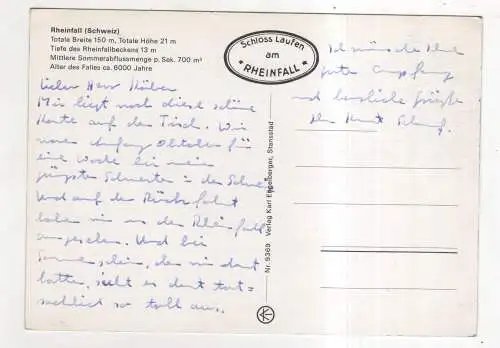 Rheinfall (Schweiz)
Totale Breite 150 m, Totale Höhe 21 m
Tiefe des Rheinfallbeckens 13 m
Mittlere Sommerabflussmenge p. Sek. 700 m³
Alter des Falles ca. 6000 Jahre
Lieber Herr
Mir liegt noch diese schöne
Karte auf dem Tisch. Wir
waren Anfang Oktober für
eine Woche bei meiner
jüngsten Schwester in der Schweiz
und auf der Rückfahrt
haben wir uns den Rheinfall
angesehen. Und bei
Sonnenschein, den wir dort
hatten, sieht es dort tat-
sächlich so toll aus.
Schloss Laufen
am
*RHEINFALL*
Ich wünsche Ihnen
gute
und herzliche Grüße
Ihr
Nr. 9369 Verlag Karl Engelberger, Stansstad
K